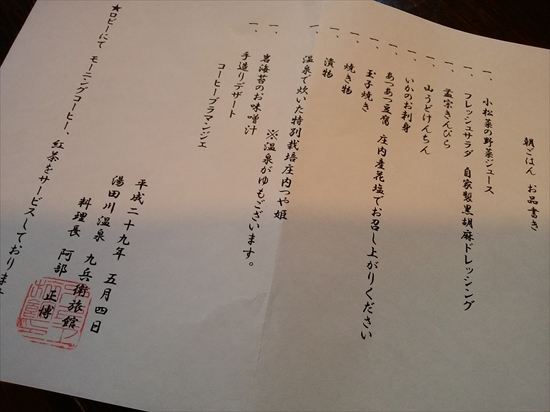 朝ごはん お品書き
一、小松菜の野菜ジュース
一、フレッシュサラダ 自家製黒胡麻ドレッシング
一、孟宗きんぴら
一、山うどけんちん
一、いかのお刺身
一、あつあつ豆腐 庄内産花塩でお召し上がりください
一、玉子焼き
一、焼き物
一、漬物
一、温泉で炊いた特別栽培庄内つや姫
※温泉がゆもございます。
一、岩海苔のお味噌汁
一、手造りデザート
コーヒーブラマンジェ
平成二十九年 五月四日
湯田川温泉 九兵衛旅館
料理長 阿部 正博
★ロビーにて モーニングコーヒー、紅茶をサービスしております